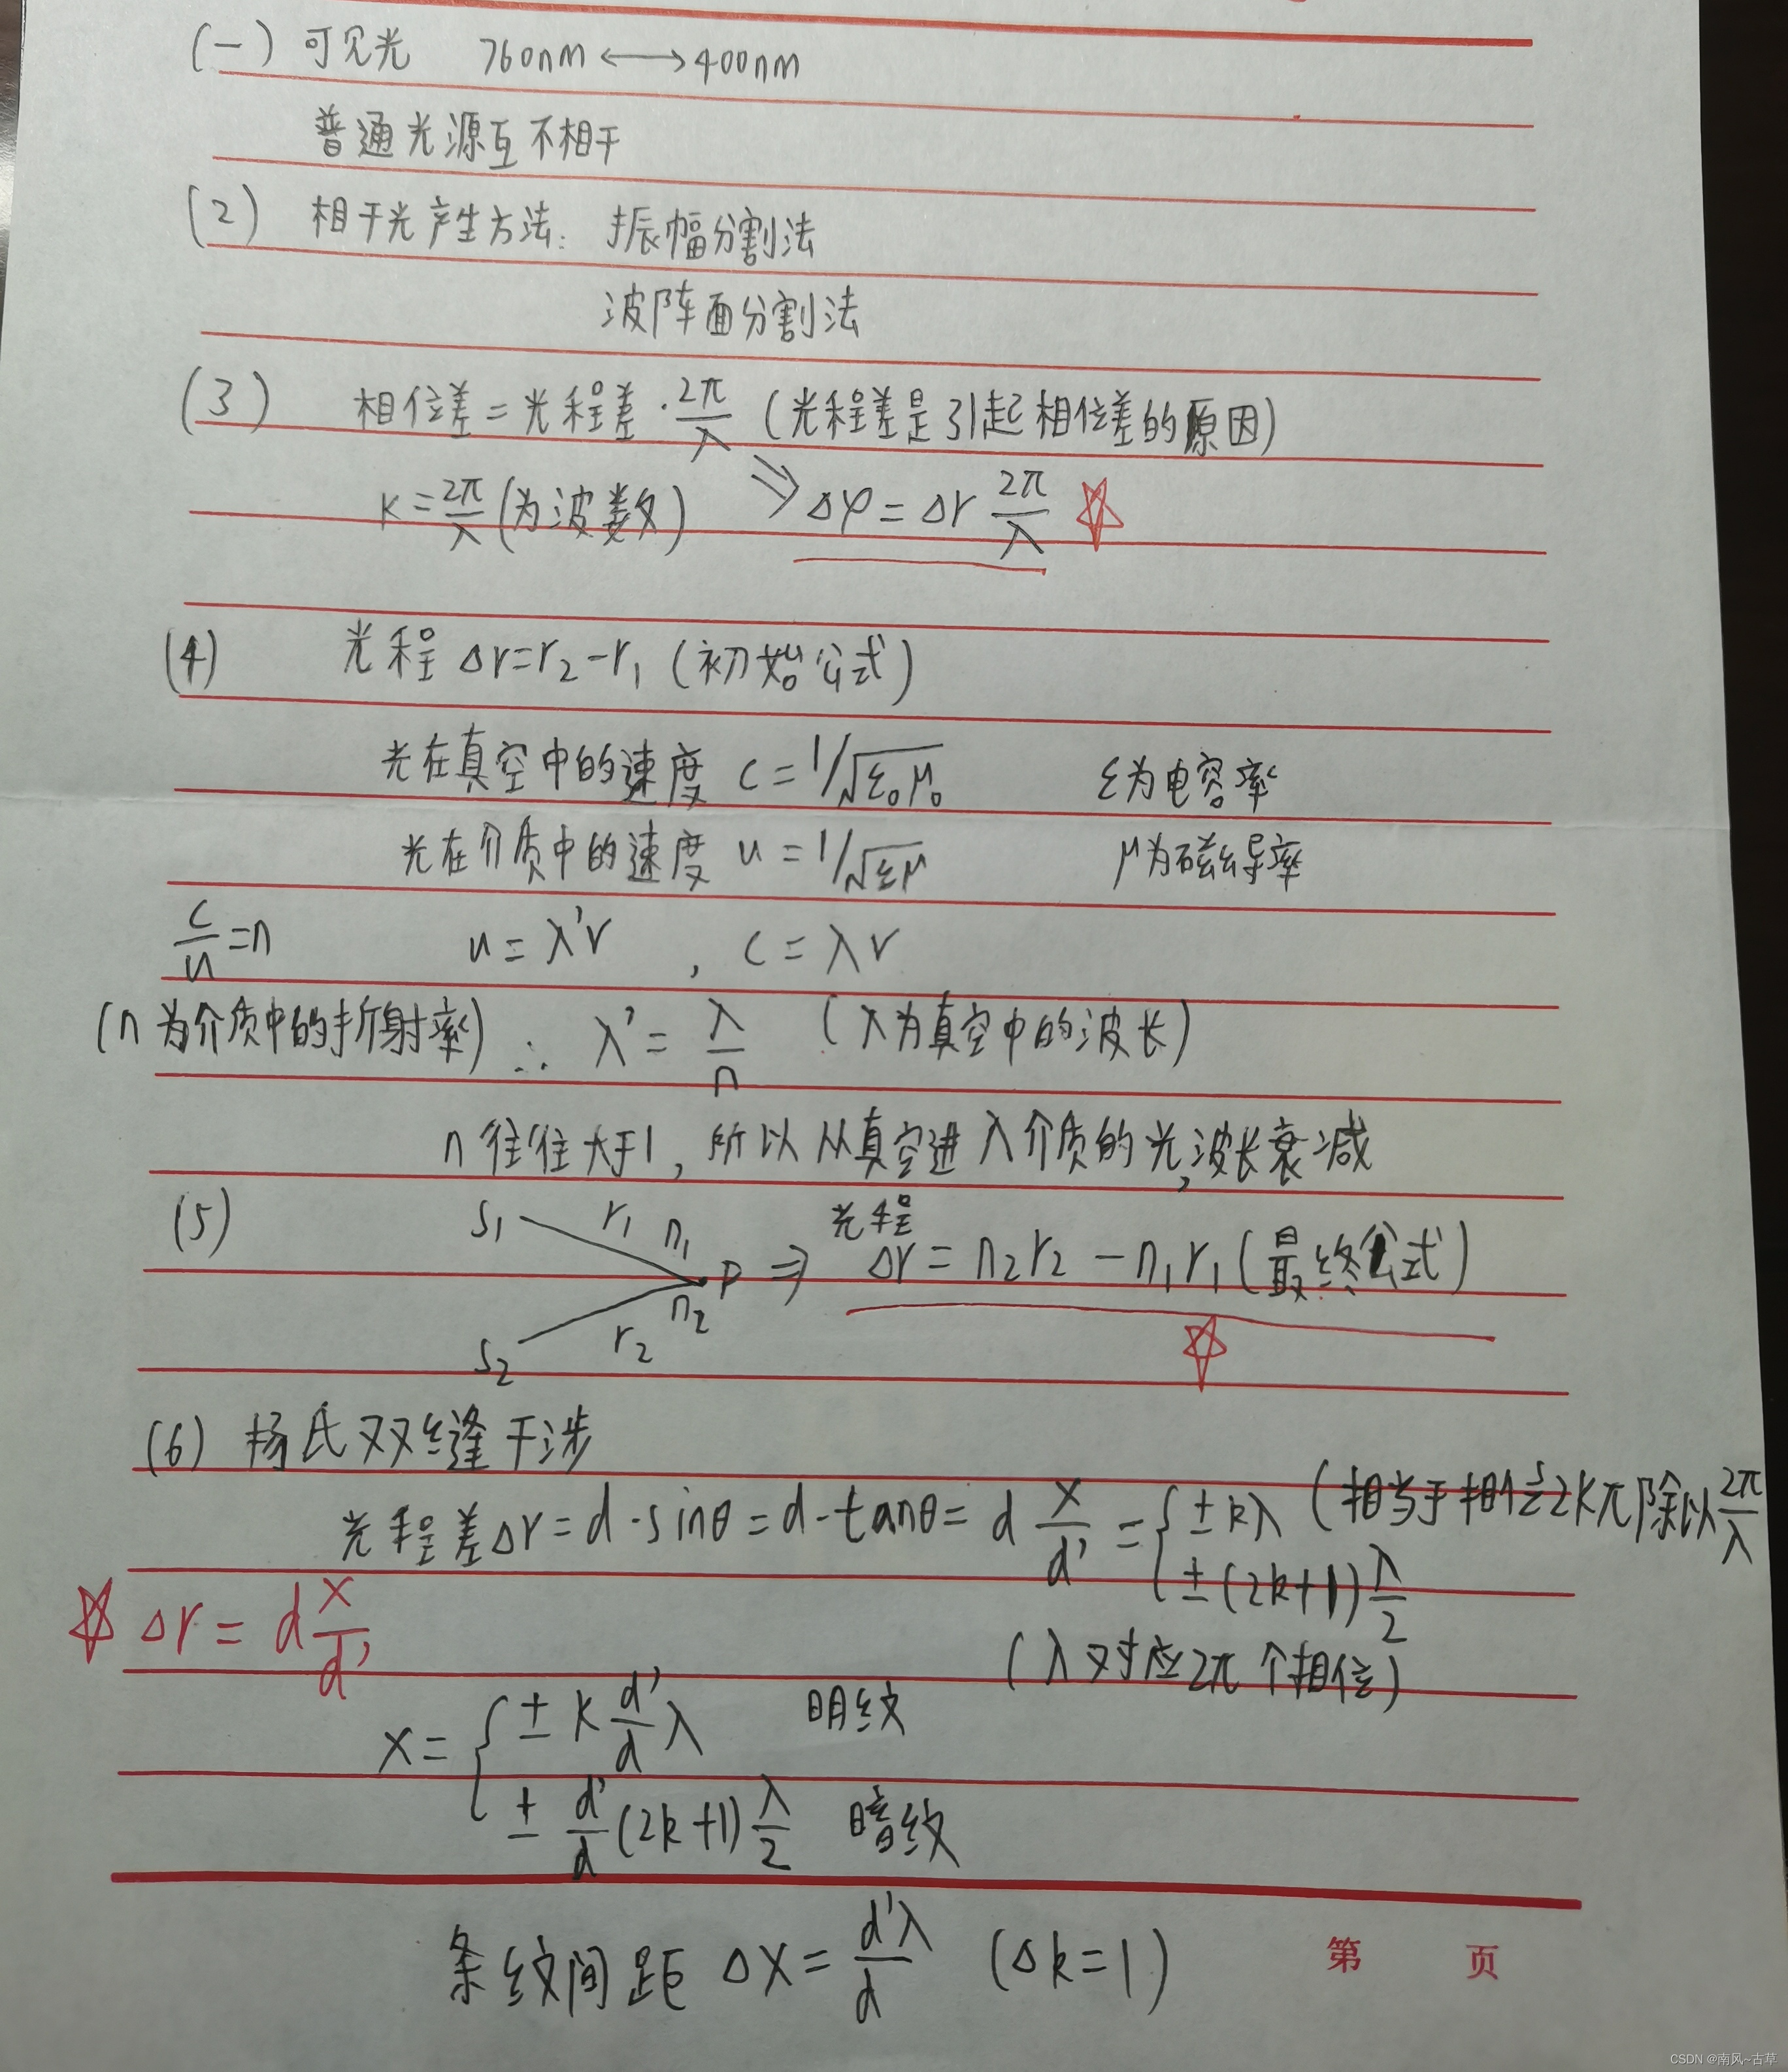 (一) 可见光 760nm ⟷ 400nm
普通光源互不相干
(2) 相干光产生方法: 振幅分割法
波阵面分割法
(3) 相位差 = 光程差 · 2π/λ (光程差是引起相位差的原因)
K = 2π/λ (为波数) ⇒ Δφ = Δr 2π/λ ☆
(4) 光程 Δr = r₂ - r₁ (初始公式)
光在真空中的速度 c = 1/√ε₀μ₀ ε为电容率
光在介质中的速度 u = 1/√εμ μ为磁导率
c/u = n u = λ'ν , c = λν
(n为介质中的折射率) ∴ λ' = λ/n (λ为真空中的波长)
n往往大于1, 所以从真空进入介质的光,波长衰减
(5) S₁ r₁ n₁ P ⇒ 光程 Δr = n₂r₂ - n₁r₁ (最终公式)
S₂ r₂ n₂ ☆
(6) 杨氏双缝干涉
光程差 Δr = d·sinθ = d·tanθ = d x/d' = { ±kλ (相当于相位2kπ除以2π/λ
±(2k+1)λ/2
☆ Δr = d x/d'
(λ对应2π个相位)
x = { ± k d'/d λ 明纹
± d'/d (2k+1) λ/2 暗纹
条纹间距 Δx = d'λ/d (Δk=1)
第 页
CSDN @南风~古草